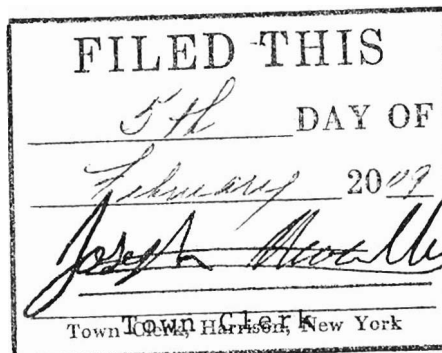 FILED THIS
5th DAY OF
February 2009
Joseph
Town Clerk
Town Clerk, Harrison, New York